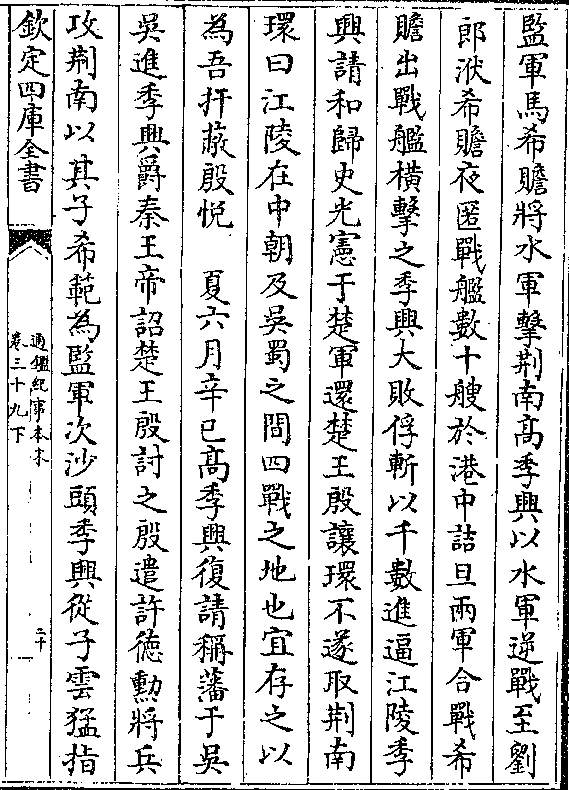 監軍馬希瞻將水軍擊荆南髙季興以水軍逆戰至劉
郎洑希瞻夜匿戰艦數十艘於港中詰旦兩軍合戰希
瞻出戰艦横擊之季興大敗俘斬以千數進逼江陵季
興請和歸史光憲于楚軍還楚王殷讓環不遂取荆南
環曰江陵在中朝及吳蜀之間四戰之地也宜存之以
為吾扞蔽殷悦　夏六月辛巳髙季興復請稱藩于吳
吳進季興爵秦王帝詔楚王殷討之殷遣許徳勲將兵
攻荆南以其子希範為監軍次沙頭季興從子雲猛指
欽定四庫全書
通鑑紀事本末
卷三十九下
二十